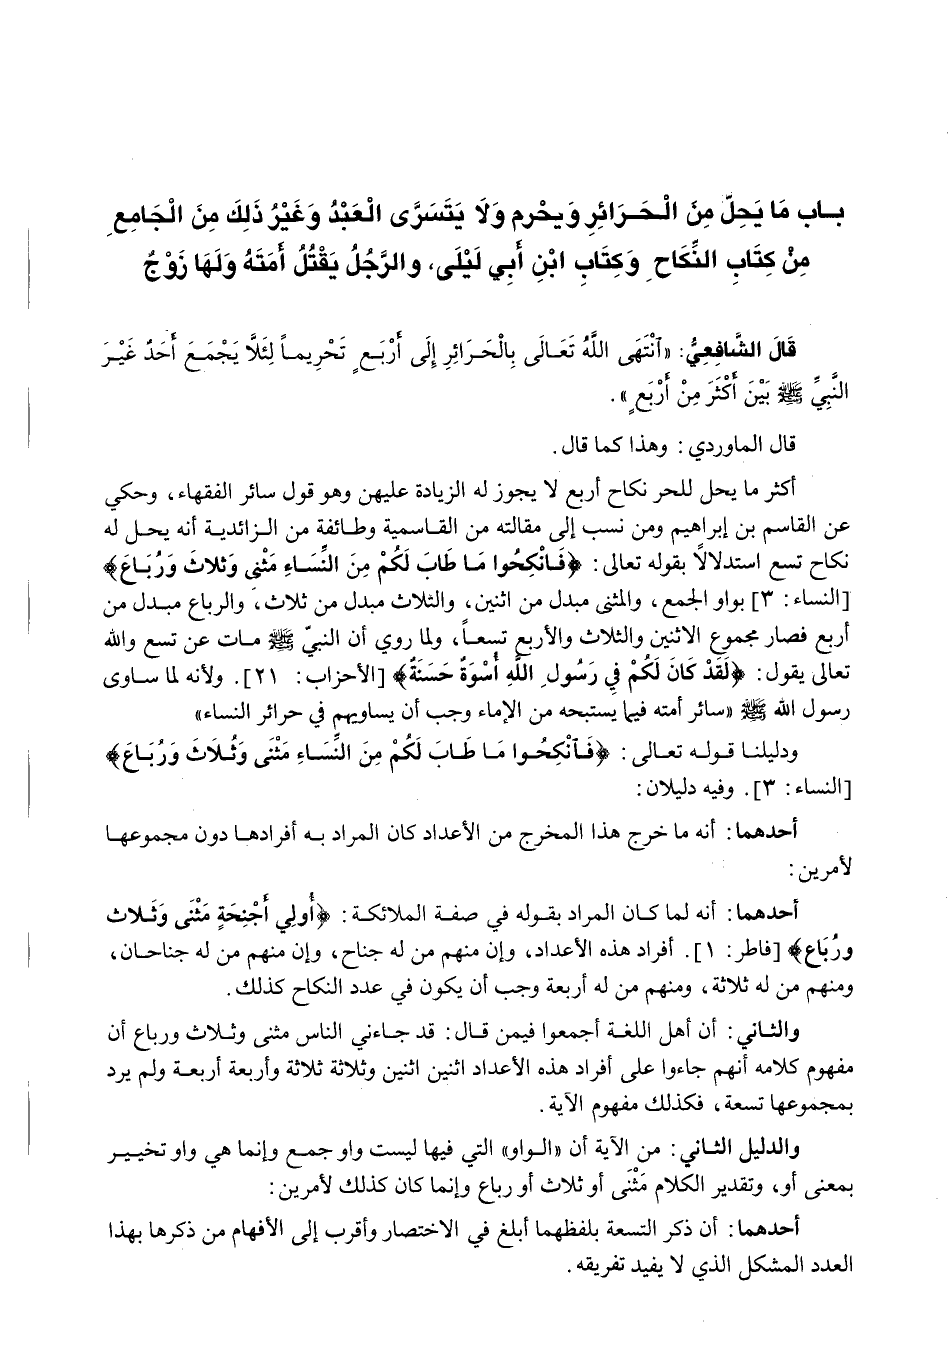 باب مَا يَحِلّ مِنَ الْحَرَائِرِ وَيحْرم وَلَا يَتَسَرَّى الْعَبْدُ وَغَيْرُ ذَلِكَ مِنَ الْجَامِعِ
مِنْ كِتَابِ النِّكَاحِ وَكِتَابِ ابْنِ أَبِي لَيْلَى، والرَّجُلُ يَقْتُلُ أَمَتَهُ وَلَهَا زَوْجُ
قَالَ الشَّافِعِيُّ: «اَنْتَهَى اللَّهُ تَعَالَى بِالْحَرَائِرِ إِلَى أَرْبَعٍ تَحْرِيماً لِئَلَّا يَجْمَعَ أَحَدٌ غَيْرَ
النَّبِيِّ ﷺ بَيْنَ أَكْثَرَ مِنْ أَرْبَعٍ».
قال الماوردي: وهذا كما قال.
أكثر ما يحل للحر نكاح أربع لا يجوز له الزيادة عليهن وهو قول سائر الفقهاء، وحكي
عن القاسم بن إبراهيم ومن نسب إلى مقالته من القاسمية وطائفة من الزائدية أنه يحل له
نكاح تسع استدلالاً بقوله تعالى: ﴿فَانْكِحُوا مَا طَابَ لَكُمْ مِنَ النِّسَاءِ مَثْنى وَثَلاثَ وَرُبَاعَ﴾
[النساء: ٣] بواو الجمع، والمثنى مبدل من اثنين، والثلاث مبدل من ثلاث، والرباع مبدل من
أربع فصار مجموع الاثنين والثلاث والأربع تسعاً، ولما روي أن النبيّ ﷺ مات عن تسع والله
تعالى يقول: ﴿لَقَدْ كَانَ لَكُمْ فِي رَسُولِ اللَّهِ أُسْوَةٌ حَسَنَةٌ﴾ [الأحزاب: ٢١]. ولأنه لما ساوى
رسول الله ﷺ «سائر أمته فيما يستبحه من الإماء وجب أن يساويهم في حرائر النساء»
ودليلنا قوله تعالى: ﴿فَآنْكِحُوا مَا طَابَ لَكُمْ مِنَ النِّسَاءِ مَثْنَى وَثُلَاثَ وَرُبَاعَ﴾
[النساء: ٣]. وفيه دليلان:
أحدهما: أنه ما خرج هذا المخرج من الأعداد كان المراد به أفرادها دون مجموعها
لأمرين:
أحدهما: أنه لما كان المراد بقوله في صفة الملائكة: ﴿أُولِي أَجْنِحَةٍ مَثْنَى وَثَلاث
ورُبَاع﴾ [فاطر: ١]. أفراد هذه الأعداد، وإن منهم من له جناح، وإن منهم من له جناحان،
ومنهم من له ثلاثة، ومنهم من له أربعة وجب أن يكون في عدد النكاح كذلك.
والثاني: أن أهل اللغة أجمعوا فيمن قال: قد جاءني الناس مثنى وثلاث ورباع أن
مفهوم كلامه أنهم جاءوا على أفراد هذه الأعداد اثنين اثنين وثلاثة ثلاثة وأربعة أربعة ولم يرد
بمجموعها تسعة، فكذلك مفهوم الآية.
والدليل الثاني: من الآية أن «الواو» التي فيها ليست واو جمع وإنما هي واو تخيير
بمعنى أو، وتقدير الكلام مَثْنَى أو ثلاث أو رباع وإنما كان كذلك لأمرين:
أحدهما: أن ذكر التسعة بلفظهما أبلغ في الاختصار وأقرب إلى الأفهام من ذكرها بهذا
العدد المشكل الذي لا يفيد تفريقه.